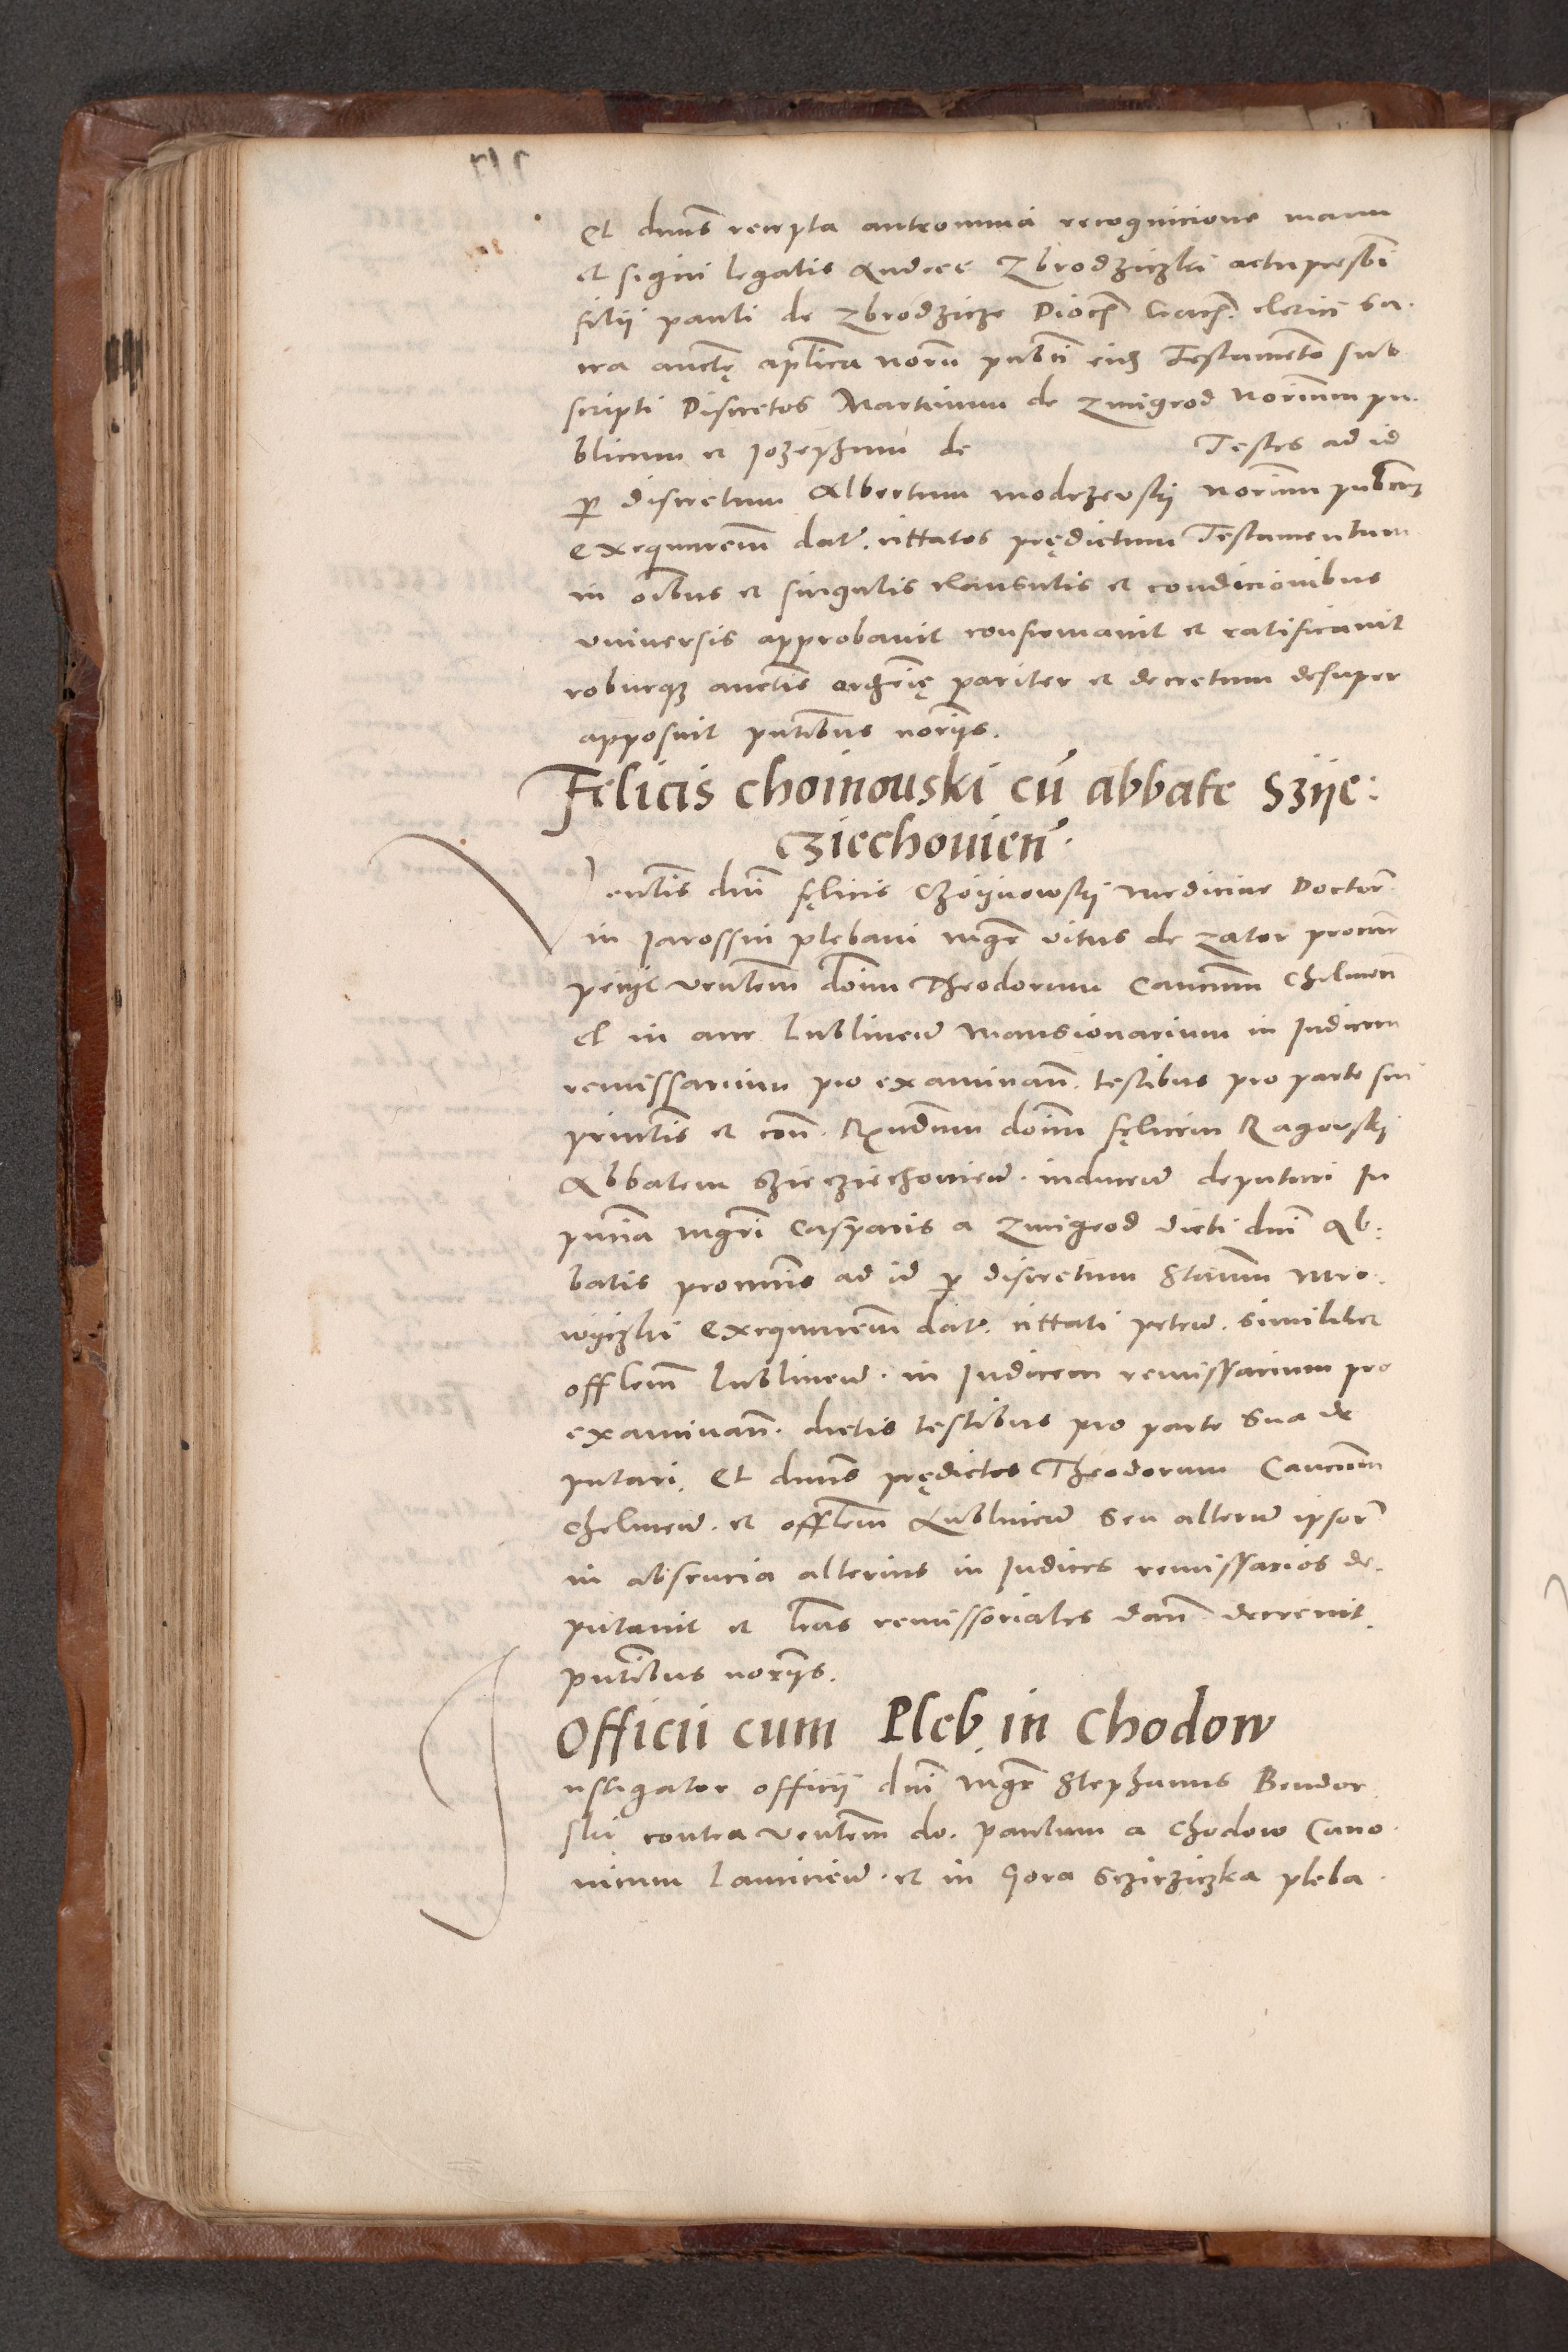 Et dnus recepta anteomnia recognicione manu
et signi legalis Andree Zbrodziczki actu presbi
filii pauli de Zbrodzicze Diocz Cracz. clerici sa.
cra auctę aplica norii publi eius Testamento sub
scripti Discretos Martinum de Zmigrod Norium pu.
blicum et Jozephum de Testes ad id
p discretum Albertum modrzevskij Norium publicum
exequutem dat. cittatos prędictum Testamentum
in oibus et singulis clausulis et condicionibus
universis approbavit confirmavit et ratificavit
roburque auctis ordrię pariter et decretum desuper
apposuit pntibus noriis.
Felicis choinouski cū abbate Sziie:
cziechouien.
Ventis dni fęlicis Choijnowskij medicine Doctor
in Jarossin plębani mgr vitus de zator procur
petijt ventem doim Theodorum Cancum Chelmen
et in arce Lublinen mansionarium in Judicem
remissarium pro examinan. testibus pro parte sui
principlis et con. Rndum doim fęlicem Ragovski
Abbatem Szieczechovien. inducen deputari In
pntia mgri Casparis a Zmigrod dicti dni Ab:
batis procuris ad id p discretum Staum mro.
wijczki exequutem dat. cittati peten. similiter
offlem Lublinen. in Judicem remissarium pro
examinan. dictis testibus pro parte sua de
putari. Et dnus prędictos Theodorum Cancum
chelmen. et offlem Lublinen seu alterum ipsor
in absencia alterius in Judices remissarios de.
putavit et lras remissoriales dan. decrevit.
pntibus noriis.
Officii cum Pleb. in Chodow
Instigator officij dni mgr Stephanus Bendor
ski contra ventem do. paulum a Chodow Cano.
nicum Lancicien. et in Gora Scziczicka pleba.